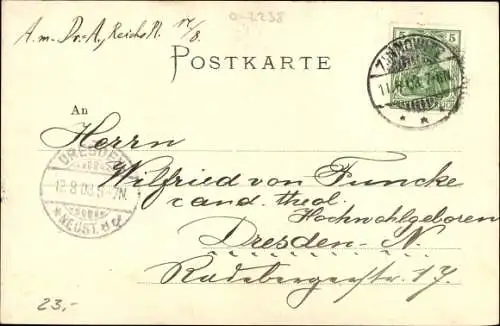 0-2238
A. m. Dr. A. Reichs N. 17/8.
POSTKARTE
5 5
ZINNOWITZ
11.8.03. 7-8N.
An
Herrn
Wilfried von Funcke
cand. theol.
Hochwohlgeboren
Dresden-N.
Radebergerstr. 17.
DRESDEN
12.8.03 5-7N.
NEUST.
23,-